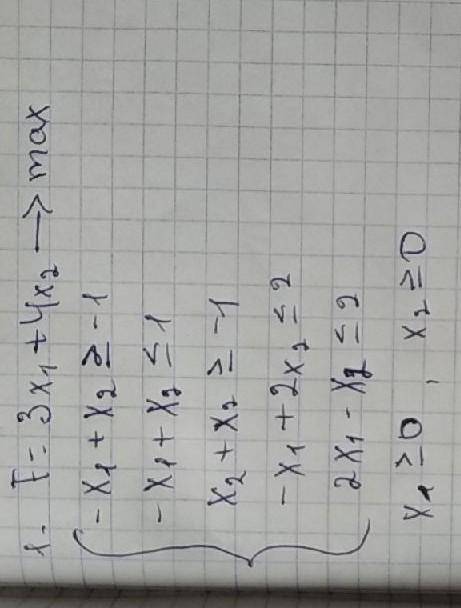 1. F = 3x₁ + 4x₂ → max
-x₁ + x₂ ≥ -1
-x₁ + x₂ ≤ 1
x₂ + x₂ ≥ -1
-x₁ + 2x₂ ≤ 2
2x₁ - x₂ ≤ 2
x₁ ≥ 0, x₂ ≥ 0